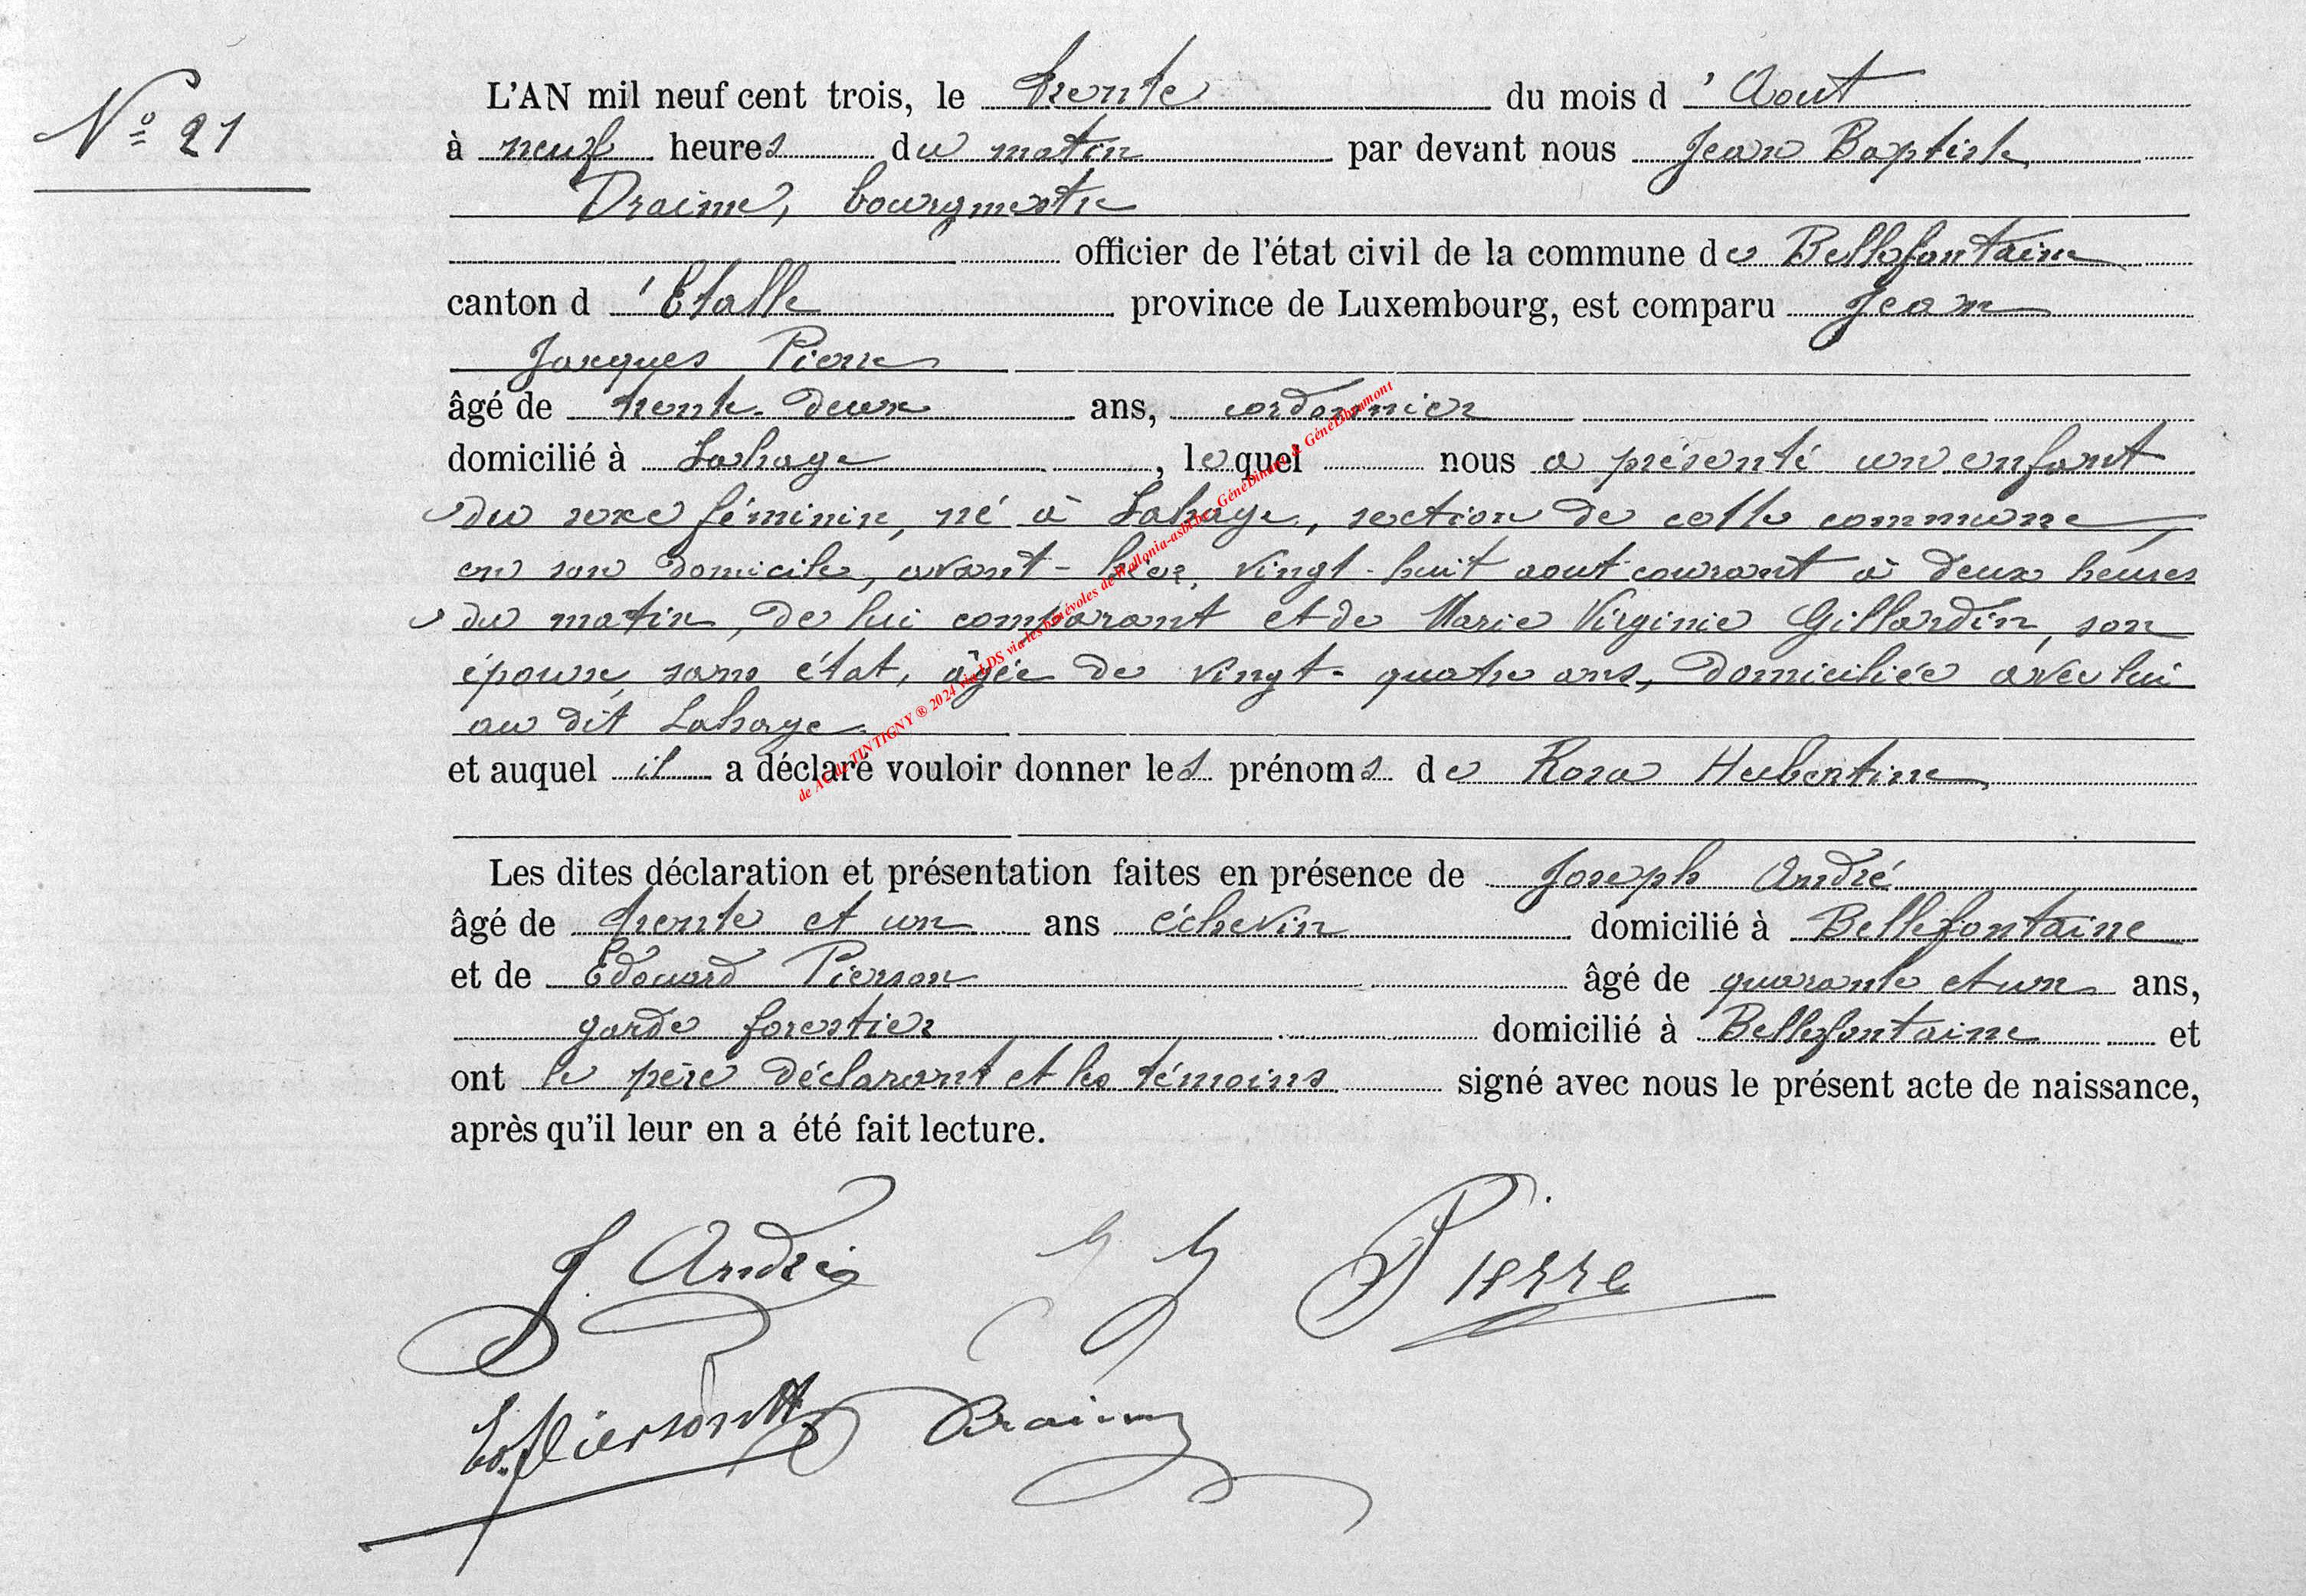 N° 21
L'AN mil neuf cent trois, le trente du mois d'Aout
à neuf heures du matin par devant nous Jean Baptiste
Draime, bourgmestre
officier de l'état civil de la commune de Bellefontaine
canton d'Etalle province de Luxembourg, est comparu Jean
Jacques Pierre
âgé de trente-deux ans, cordonnier
domicilié à Lahage, lequel nous a présenté un enfant
du sexe féminin, né à Lahage, section de cette commune,
en son domicile, avant-hier, vingt-huit aout courant à deux heures
du matin, de lui comparant et de Marie Virginie Gillardin, son
épouse, sans état, âgée de vingt-quatre ans, domiciliée avec lui
au dit Lahage
et auquel il a déclaré vouloir donner les prénoms de Rosa Hubertine
Les dites déclaration et présentation faites en présence de Joseph André
âgé de trente et un ans échevin domicilié à Bellefontaine
et de Edouard Pierson âgé de quarante et un ans,
garde forestier domicilié à Bellefontaine et
ont le père déclarant et les témoins signé avec nous le présent acte de naissance,
après qu'il leur en a été fait lecture.
J. André J J Pierre
Ed. Pierson Draime
de AC de TINTIGNY ® 2024 via LDS via les bénévoles de Wallonia-asbl.be, GénéDinant & GénéLibramont